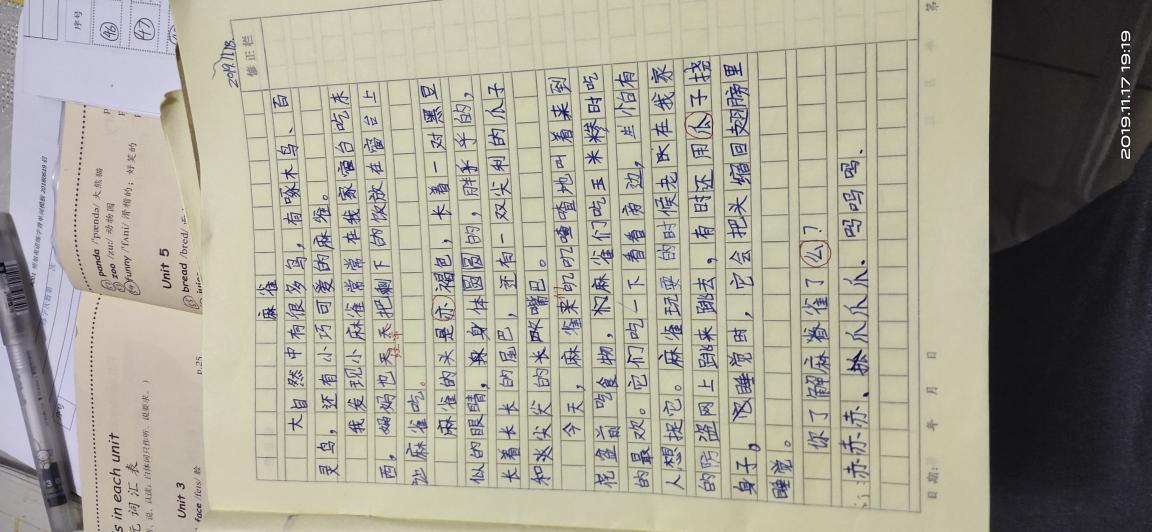 2019.11.18.
修正栏
麻雀
大自然中有很多鸟，有啄木鸟、百
灵鸟，还有小巧可爱的麻雀。
我发现小麻雀常常在我家窗台吃东
西，妈妈也天天把剩下的饭放在窗台上
让麻雀吃。
麻雀的头是赤褐色，长着一对黑豆
似的眼睛，身体圆圆的，胖乎乎的，
长着长长的尾巴，还有一双尖利的爪子
和尖尖的长嘴巴。
今天，麻雀叽叽喳喳地叫着来到
花盆前吃食物，麻雀们吃玉米糁时吃
的最欢。它们吃一下看看旁边，生怕有
人想捉它。麻雀玩耍的时候老跃在我家
的防盗网上跳来跳去，有时还用爪子挠
身子，睡觉时，它会把头缩回翅膀里
睡觉。
你了解麻雀了么？
赤赤赤、爪爪爪爪、吗吗吗、
日期： 年 月 日
序号
46
47
panda /'pændə/ 大熊猫
zoo /zu:/ 动物园
funny /'fʌni/ 滑稽的；好笑的
Unit 5
bread /bred/
s in each unit
元词汇表
Unit 3
face /feɪs/ 脸
p.25
2019.11.17 19:19